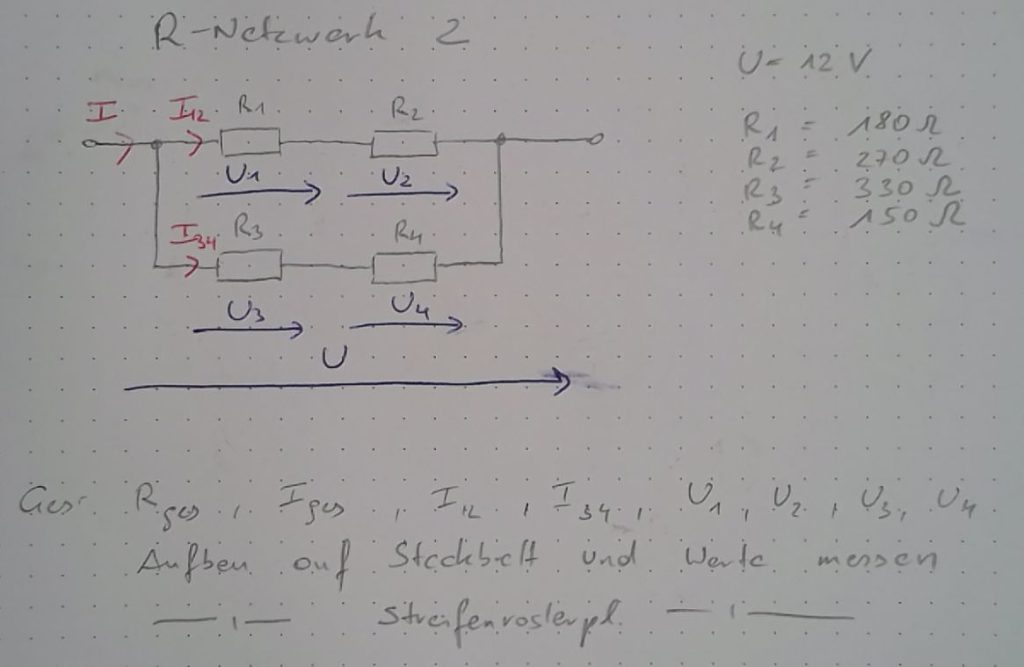 R-Netzwerk 2
U = 12 V
I I12 R1 R2
R1 = 180 Ω
R2 = 270 Ω
R3 = 330 Ω
R4 = 150 Ω
U1 U2
I34 R3 R4
U3 U4
U
Ges: Rges, Iges, I12, I34, U1, U2, U3, U4
Aufbau auf Steckbett und Werte messen
— ı — Streifenrasterpl. — ı —